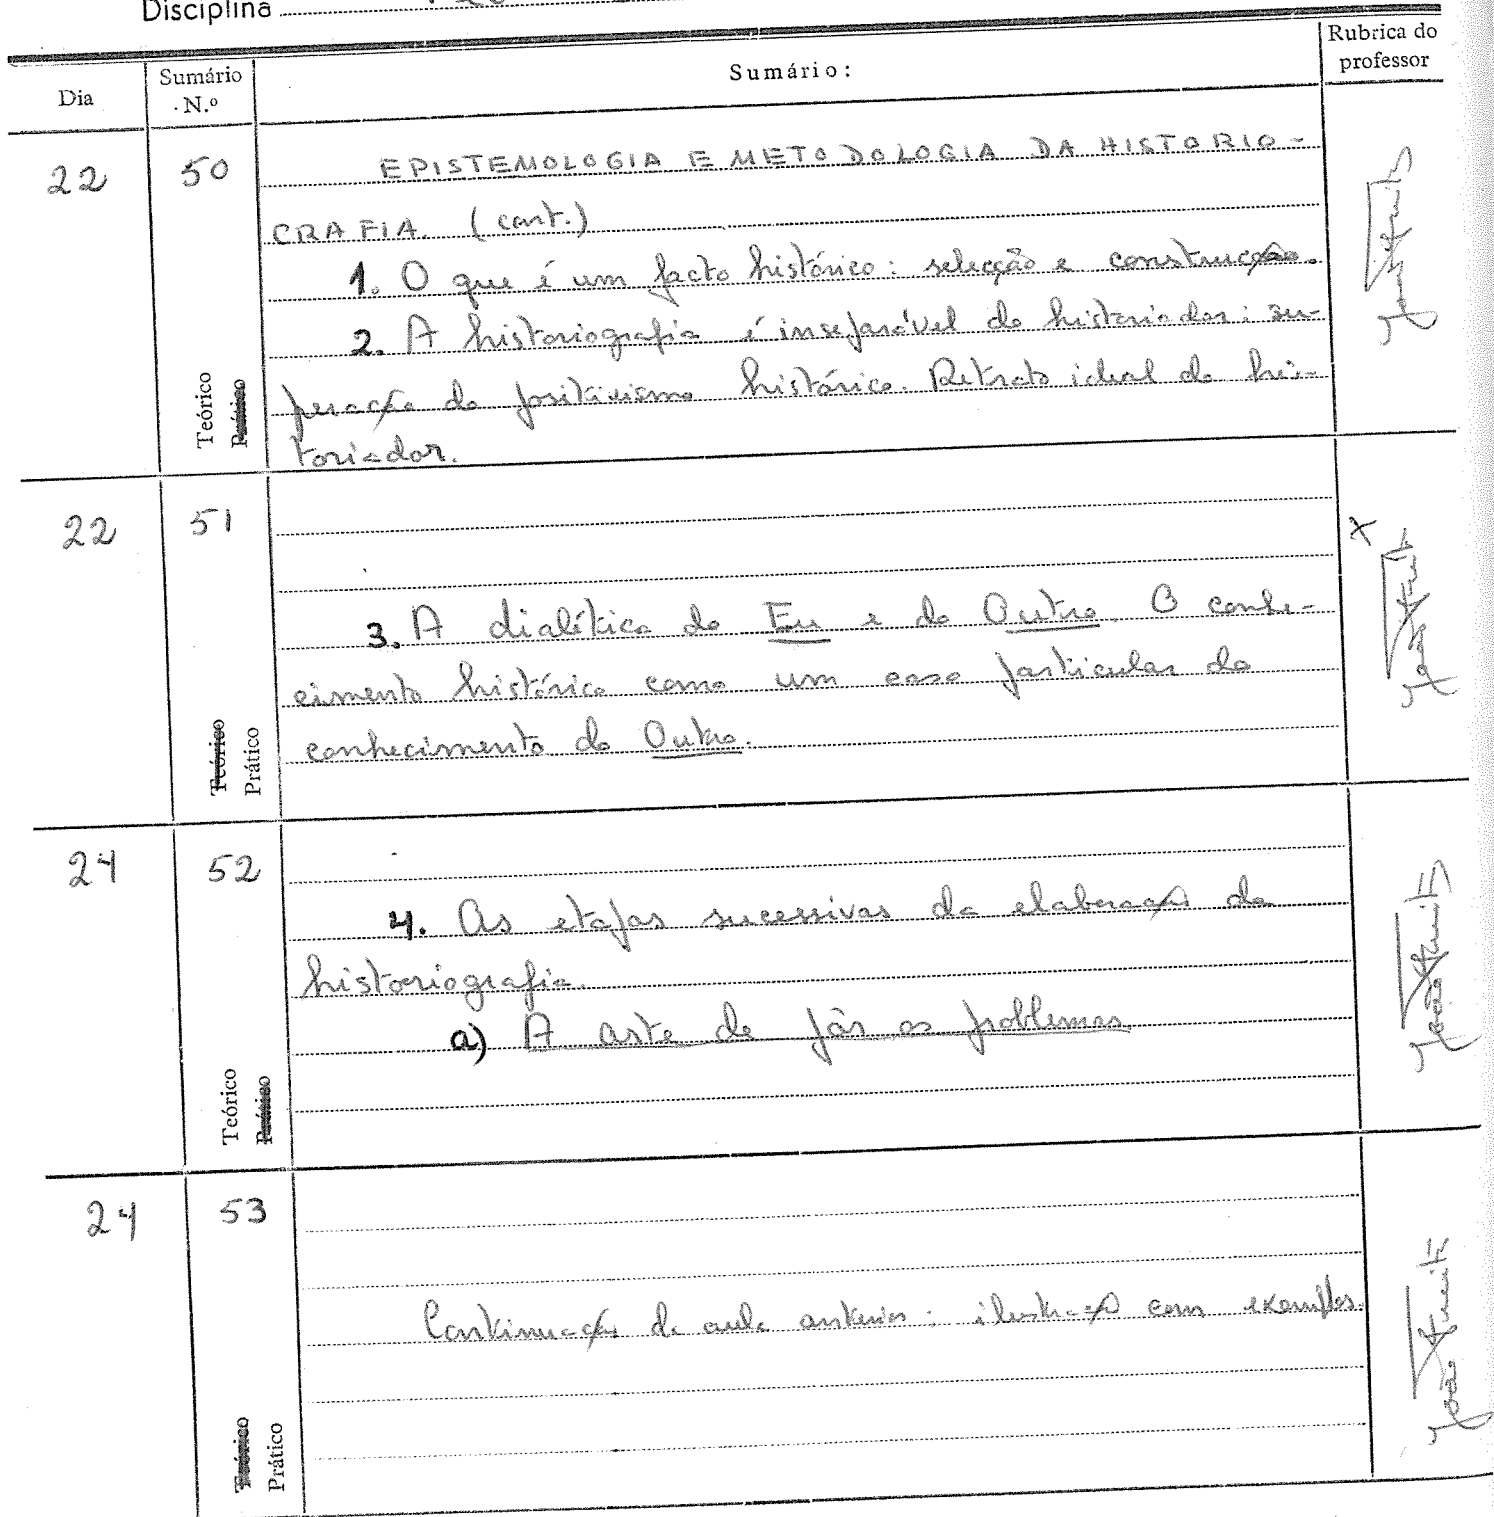 Disciplina
Dia
Sumário N.º
Sumário:
Rubrica do professor
22
50
Teórico
Prático
EPISTEMOLOGIA E METODOLOGIA DA HISTORIO-
GRAFIA. (cont.)
1. O que é um facto histórico: selecção e construcção.
2. A historiografia é inseparável do historiador: su-
peração do positivismo histórico. Retrato ideal do his-
toriador.
22
51
Teórico
Prático
X
3. A dialética do Eu e do Outro. O conhe-
cimento histórico como um caso particular do
conhecimento do Outro.
24
52
Teórico
Prático
4. As etapas sucessivas da elaboração da
historiografia.
a) A arte de pôr os problemas
24
53
Teórico
Prático
Continuação da aula anterior: ilustração com exemplos.